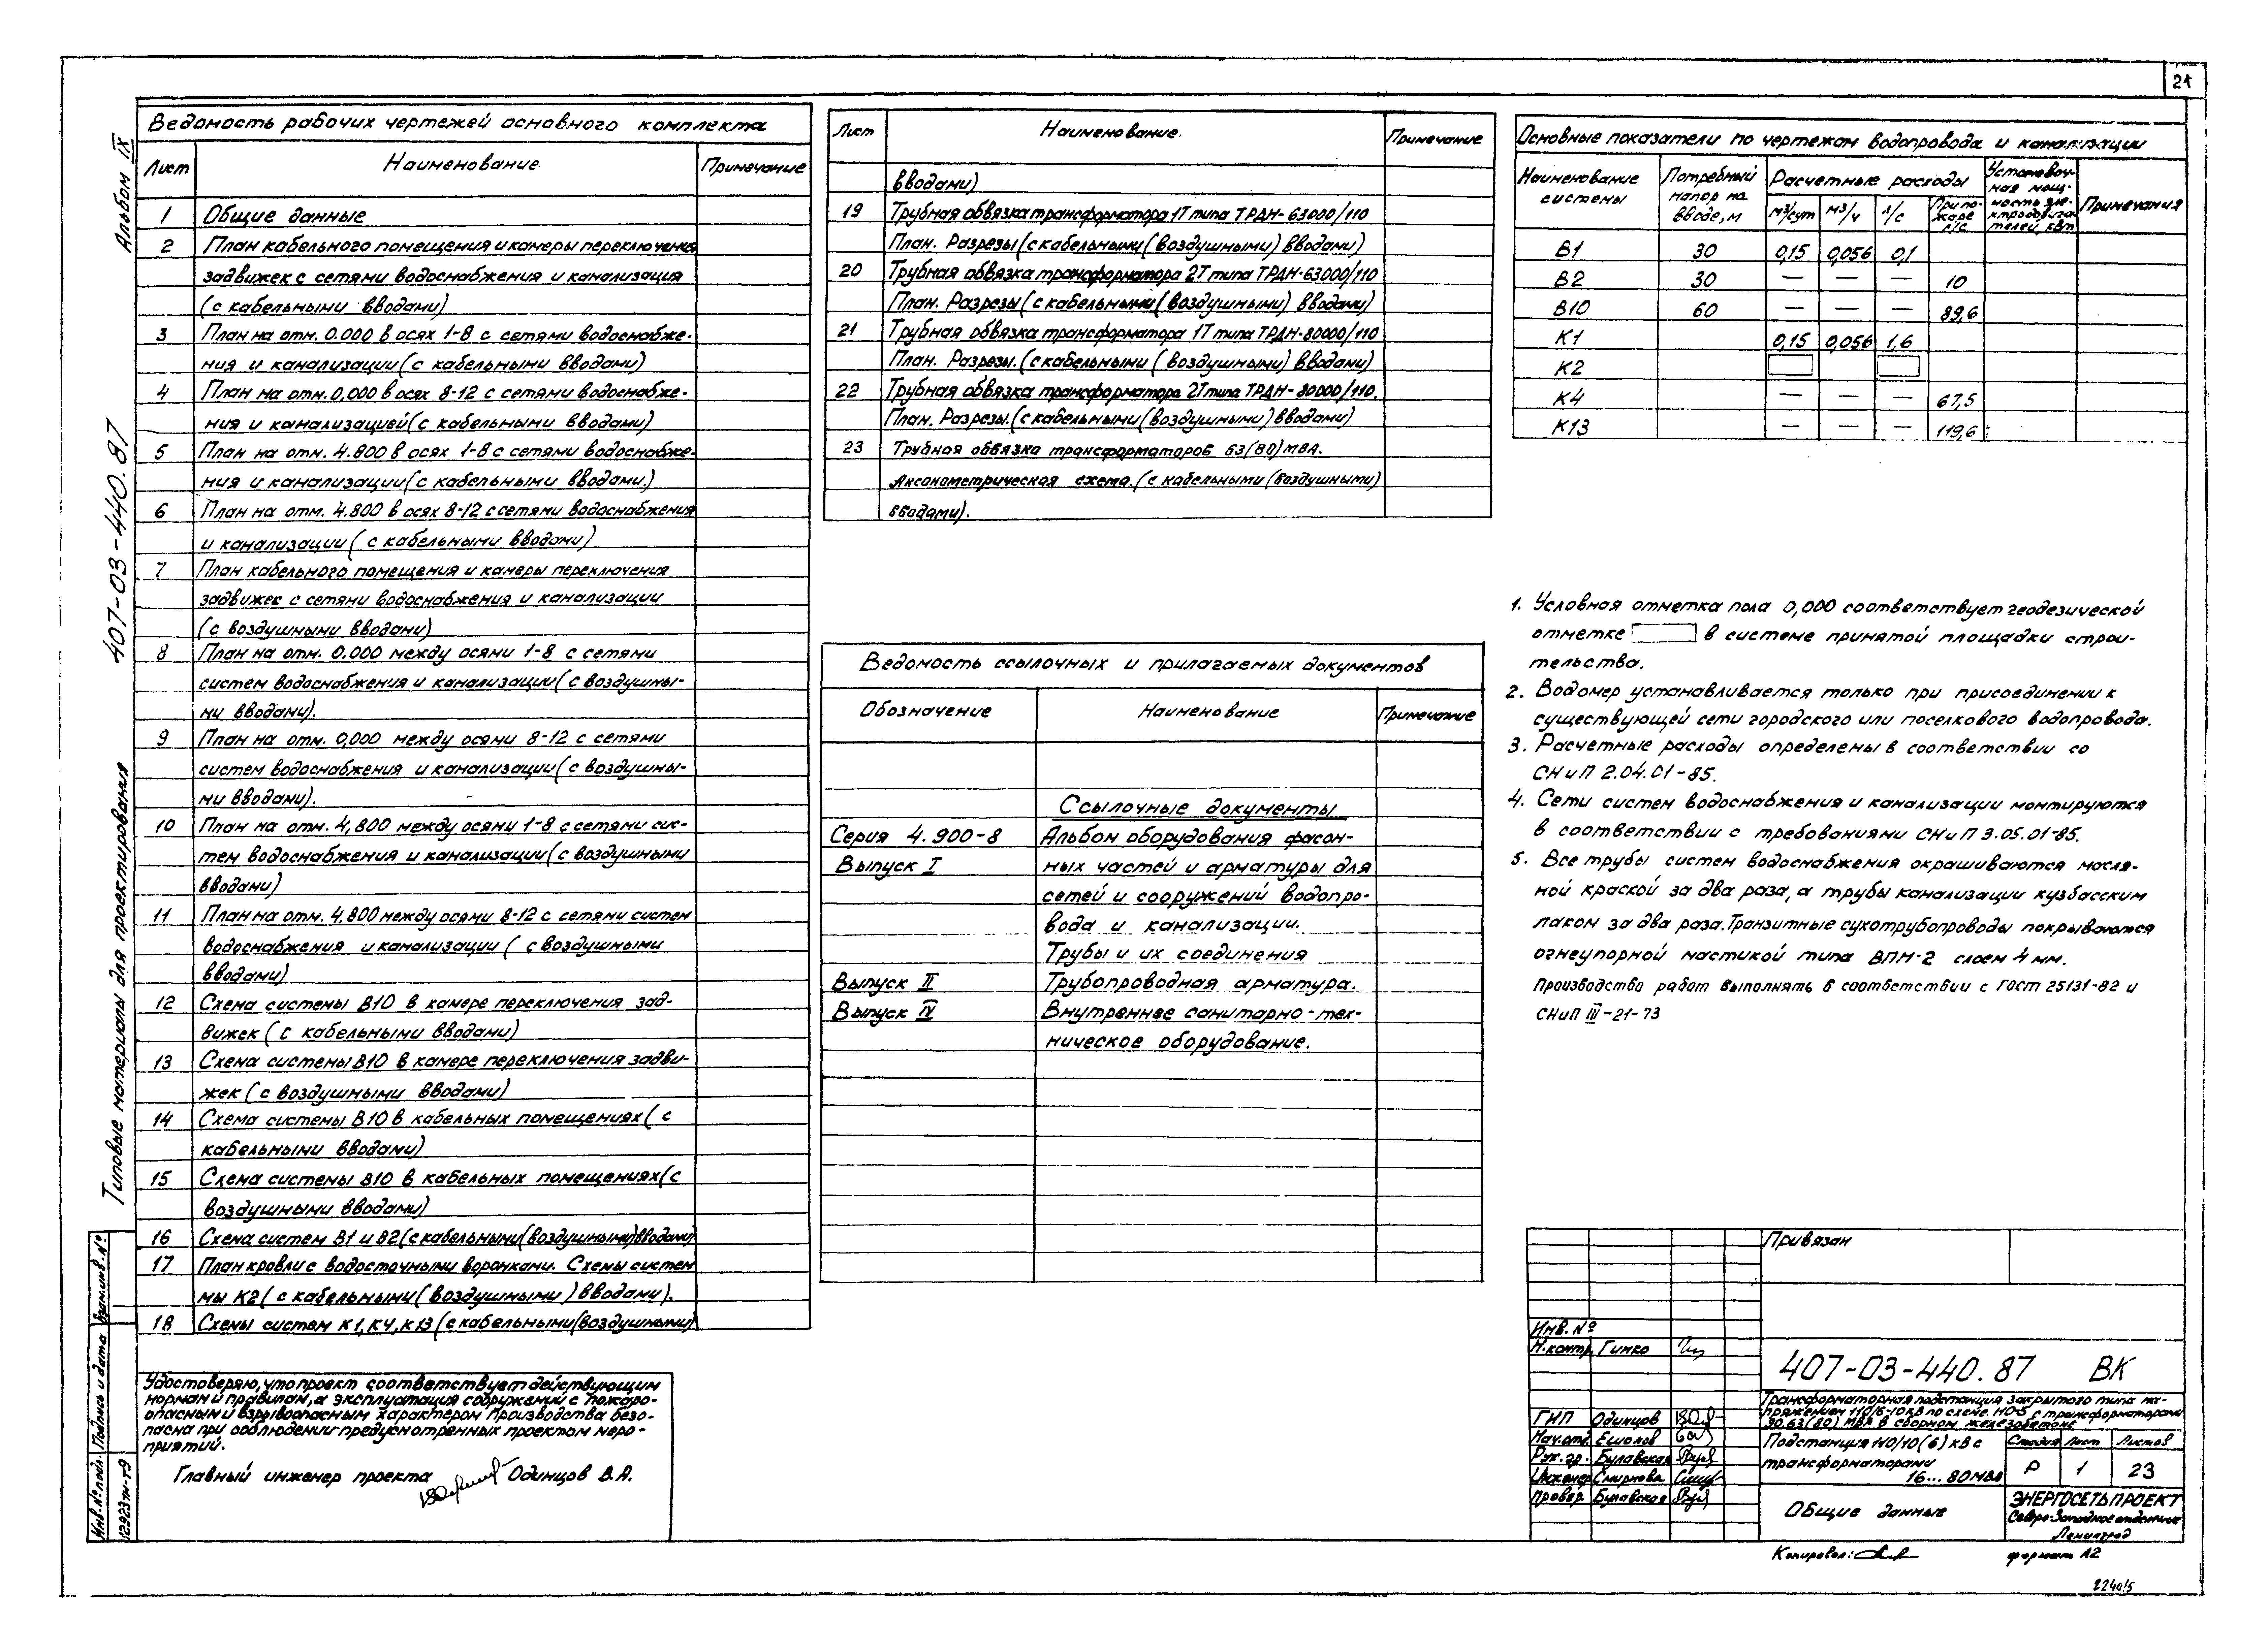 21
Альбом IX
407-03-440.87
Типовые материалы для проектирования
Ведомость рабочих чертежей основного комплекта
Лист Наименование Примечание
1 Общие данные
2 План кабельного помещения и камеры переключения
задвижек с сетями водоснабжения и канализация
(с кабельными вводами)
3 План на отм. 0.000 в осях 1-8 с сетями водоснабже-
ния и канализации (с кабельными вводами)
4 План на отм. 0,000 в осях 8-12 с сетями водоснабже-
ния и канализацией (с кабельными вводами)
5 План на отм. 4.800 в осях 1-8 с сетями водоснабже-
ния и канализации (с кабельными вводами.)
6 План на отм. 4.800 в осях 8-12 с сетями водоснабжения
и канализации (с кабельными вводами)
7 План кабельного помещения и камеры переключения
задвижек с сетями водоснабжения и канализации
(с воздушными вводами)
8 План на отм. 0.000 между осями 1-8 с сетями
систем водоснабжения и канализации (с воздушны-
ми вводами).
9 План на отм. 0,000 между осями 8-12 с сетями
систем водоснабжения и канализации (с воздушны-
ми вводами).
10 План на отм. 4,800 между осями 1-8 с сетями сис-
тем водоснабжения и канализации (с воздушными
вводами)
11 План на отм. 4,800 между осями 8-12 с сетями систем
водоснабжения и канализации (с воздушными
вводами)
12 Схема системы В10 в камере переключения зад-
вижек (с кабельными вводами)
13 Схема системы В10 в камере переключения задви-
жек (с воздушными вводами)
14 Схема системы В10 в кабельных помещениях (с
кабельными вводами)
15 Схема системы В10 в кабельных помещениях (с
воздушными вводами)
16 Схема систем В1 и В2 (с кабельными (воздушными) вводами)
17 План кровли с водосточными воронками. Схемы систем
мы К2 (с кабельными (воздушными) вводами).
18 Схемы систем К1, К4, К13 (с кабельными (воздушными)
Лист Наименование. Примечание
вводами)
19 Трубная обвязка трансформатора 1Т типа ТРДН-63000/110
План. Разрезы (с кабельными (воздушными) вводами)
20 Трубная обвязка трансформатора 2Т типа ТРДН-63000/110
План. Разрезы (с кабельными (воздушными) вводами)
21 Трубная обвязка трансформатора 1Т типа ТРДН-80000/110
План. Разрезы. (с кабельными (воздушными) вводами)
22 Трубная обвязка трансформатора 2Т типа ТРДН-80000/110.
План. Разрезы. (с кабельными (воздушными) вводами)
23 Трубная обвязка трансформаторов 63(80) МВА.
Аксонометрическая схема. (с кабельными (воздушными)
вводами).
Ведомость ссылочных и прилагаемых документов
Обозначение Наименование Примечание
Ссылочные документы
Серия 4.900-8 Альбом оборудования фасон-
Выпуск I ных частей и арматуры для
сетей и сооружений водопро-
вода и канализации.
Трубы и их соединения
Выпуск II Трубопроводная арматура.
Выпуск IV Внутреннее санитарно-тех-
ническое оборудование.
Основные показатели по чертежам водопровода и канализации
Наименование системы Потребный напор на вводе, м Расчетные расходы Установоч-ная мощ-ность эле-ктродвига-телей, квт Примечания
м³/сут м³/ч л/с При по-жаре л/с
В1 30 0,15 0,056 0,1
В2 30 — — — 10
В10 60 — — — 89,6
К1 0,15 0,056 1,6
К2
К4 — — — 67,5
К13 — — — 119,6
1. Условная отметка пола 0,000 соответствует геодезической
отметке в системе принятой площадки строи-
тельства.
2. Водомер устанавливается только при присоединении к
существующей сети городского или поселкового водопровода.
3. Расчетные расходы определены в соответствии со
СНиП 2.04.01-85.
4. Сети систем водоснабжения и канализации монтируются
в соответствии с требованиями СНиП 3.05.01-85.
5. Все трубы систем водоснабжения окрашиваются масля-
ной краской за два раза, а трубы канализации кузбасским
лаком за два раза. Транзитные сухотрубопроводы покрываются
огнеупорной мастикой типа ВПМ-2 слоем 4 мм.
Производство работ выполнять в соответствии с ГОСТ 25131-82 и
СНиП III-21-73
Удостоверяю, что проект соответствует действующим
нормам и правилам, а эксплуатация сооружений с пожаро-
опасным и взрывоопасным характером производства безо-
пасна при соблюдении предусмотренных проектом меро-
приятий.
Главный инженер проекта Одинцов В.А.
Инв.№подл. Подпись и дата Взам.инв.№
12923тм-т9
Привязан
Инв. №
Н.контр. Гинко
ГИП Одинцов
Нач.отд. Ешолов
Рук. гр. Булавская
Инженер Смирнова
Провер. Булавская
407-03-440.87 ВК
Трансформаторная подстанция закрытого типа на-
пряжением 110/6-10 кВ по схеме 110-5 с трансформаторами
до 63(80) МВА в сборном железобетоне
Подстанция 110/10(6) кВ с
трансформаторами
16...80 МВА
Стадия Лист Листов
Р 1 23
Общие данные
ЭНЕРГОСЕТЬПРОЕКТ
Северо-Западное отделение
Ленинград
Копировал:
формат А2
22401/5